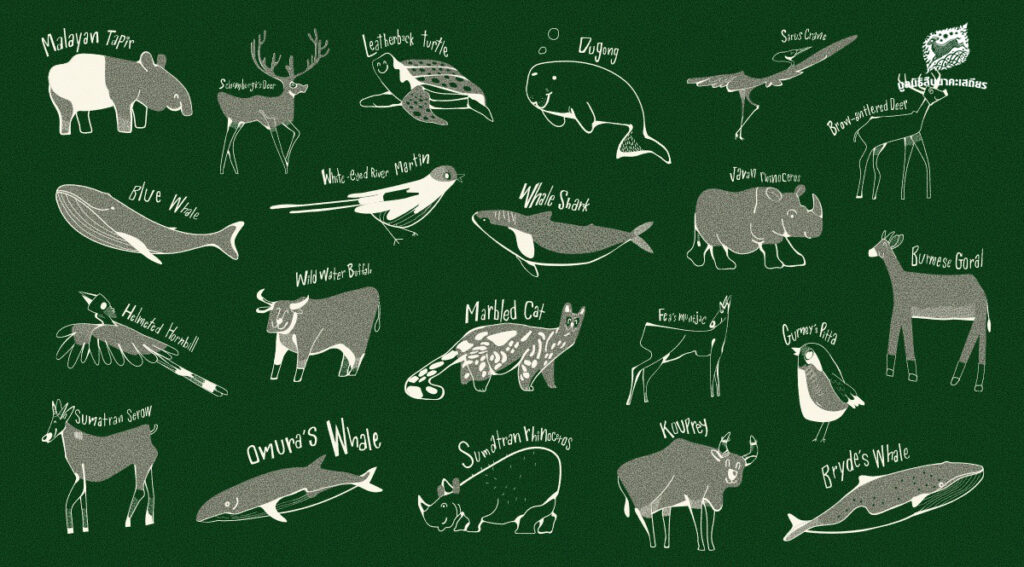 Malayan Tapir
Schomburgk's Deer
Leatherback turtle
Dugong
Sarus Crane
มูลนิธิสืบนาคะเสถียร
Brow-antlered Deer
Blue Whale
White-eyed River Martin
Whale Shark
Javan rhinoceros
Burmese Goral
Helmeted Hornbill
Wild Water Buffalo
Marbled Cat
Fea's muntjac
Gurney's Pitta
Sumatran Serow
Omura's Whale
Sumatran rhinoceros
Kouprey
Bryde's Whale